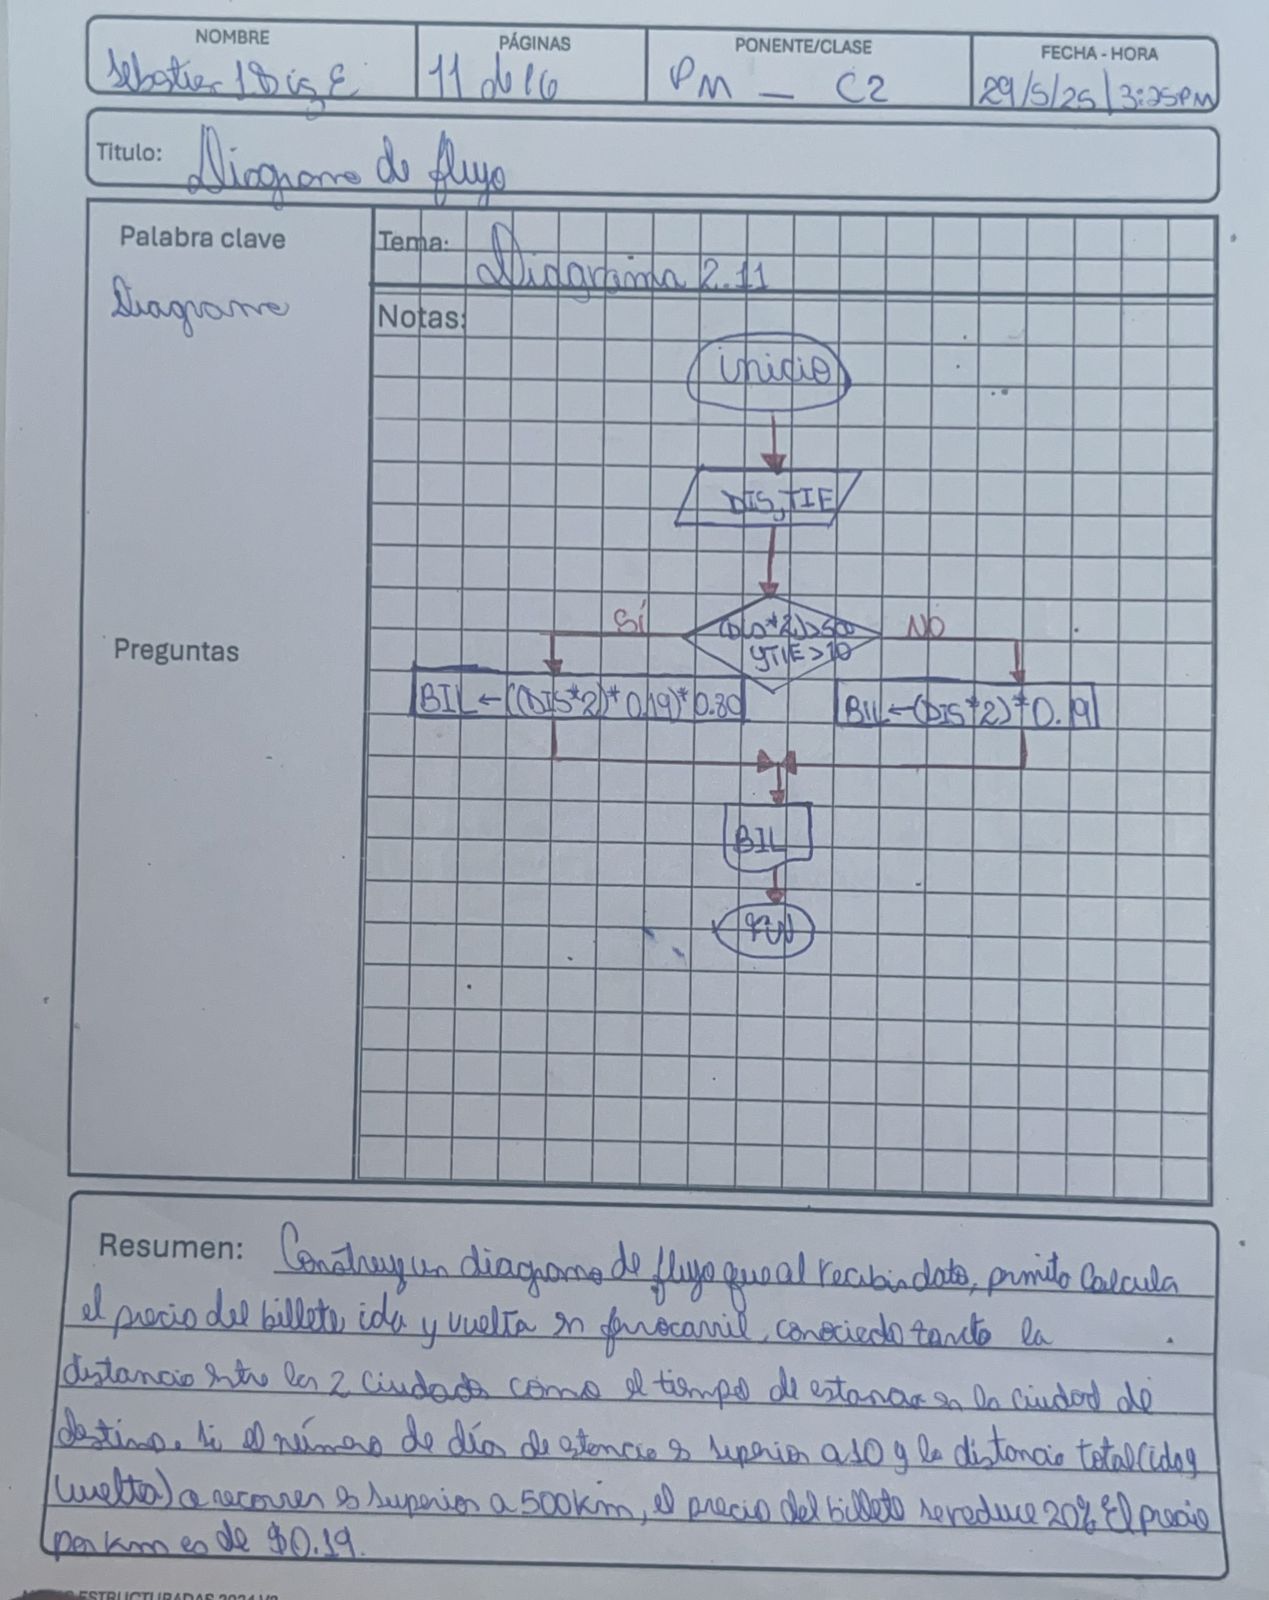 NOMBRE
PÁGINAS
PONENTE/CLASE
FECHA - HORA
11 de 16
PM - C2
29/5/25 | 3:25PM
Titulo: Diagrama de flujo
Palabra clave
Diagrama
Tema: Diagrama 2.11
Notas:
inicio
DIS, TIE
(DIS*2)>500
y TIE>10
SÍ
NO
BIL ← ((DIS*2)*0.19)*0.80
BIL ← (DIS*2)*0.19
BIL
FIN
Preguntas
Resumen: Construy un diagrama de flujo que al recibir dato, primito Calcula
el precio del billete ida y vuelta en ferrocarril, conociedo tanto la
distancia entre las 2 ciudades como el tiempo de estancia en la ciudad de
destino. Si el número de días de estancia es superior a 10 y la distancia total (ida y
vuelta) a recorrer es superior a 500km, el precio del billete se reduce 20% El precio
por km es de $0.19.